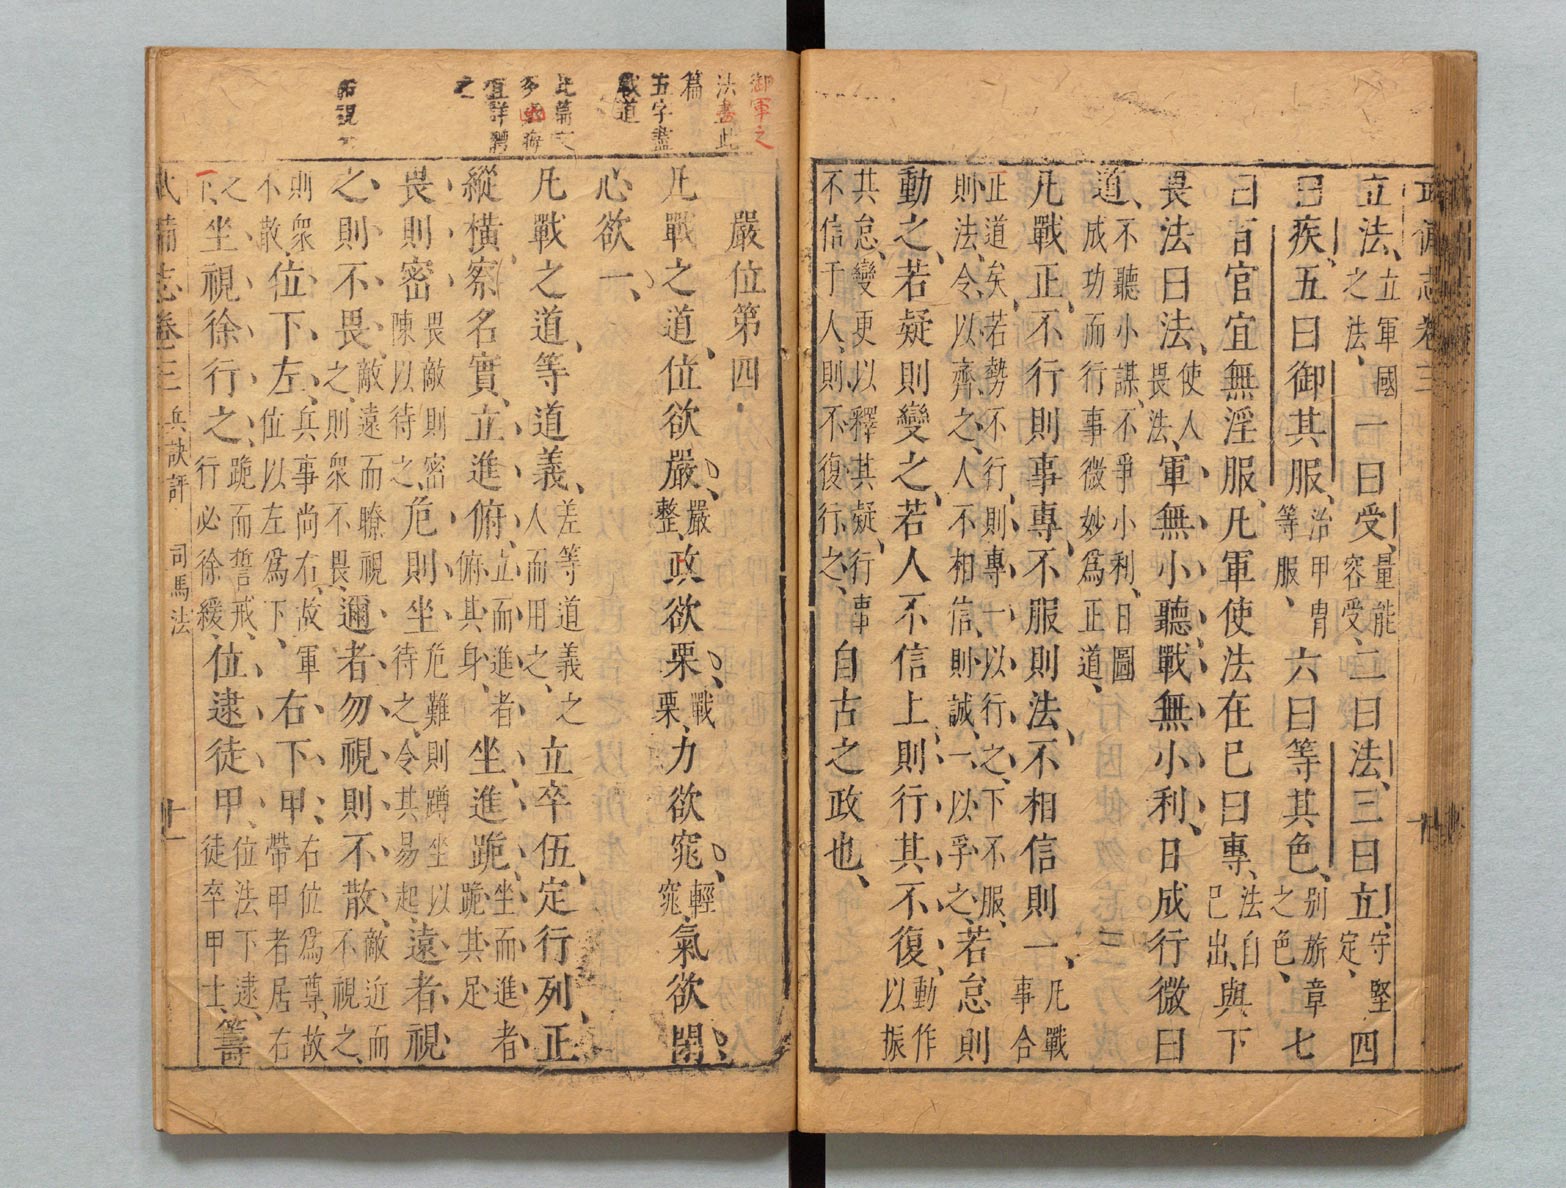 武備志卷三
十
立法、立軍國之法、一曰受、量能容受、二曰法、三曰立、守堅定、四
曰疾、五曰御其服、治甲冑等服、六曰等其色、別旅章之色、七
曰百官宜無淫服、凡軍使法在已曰專、法自已出、與下
畏法曰法、使人畏法、軍無小聽、戰無小利、日成行微曰
道、不聽小謀、不爭小利、日圖成功而行事微妙爲正道、
凡戰正不行則事專、不服則法、不相信則一、凡戰事合
正道矣、若勢不行、則專一以行之、下不服、則法令以齊之、人不相信、則誠一以孚之、若怠則
動之、若疑則變之、若人不信上、則行其不復、動作以振
其怠、變更以釋其疑、行事不信于人、則不復行之、自古之政也、
御軍之
法盡此
篇
五字盡
戰道
此篇文
宜詳聽
之
嚴位第四
凡戰之道、位欲嚴、嚴整、政欲栗、戰栗、力欲窕、輕窕、氣欲閑、
心欲一、
凡戰之道、等道義、差等道義之人而用之、立卒伍、定行列、正
縱橫、察名實、立進俯、立而進者俯其身、坐進跪、坐而進者跪其足
畏則密、畏敵則密陳以待之、危則坐、危難則蹲坐以待之、令其易起、遠者視
之則不畏、敵遠而瞭視之、則衆不畏、邇者勿視則不散、敵近而不視之、
則衆不散、位下左、兵事尚右、故軍位以左爲下、右下甲、右位爲尊、故帶甲者居右
之下、坐視徐行之、跪而誓戒、行必徐緩、位逮徒甲、位法下逮、徒卒甲士、籌
武備志卷三 兵訣評 司馬法 十一